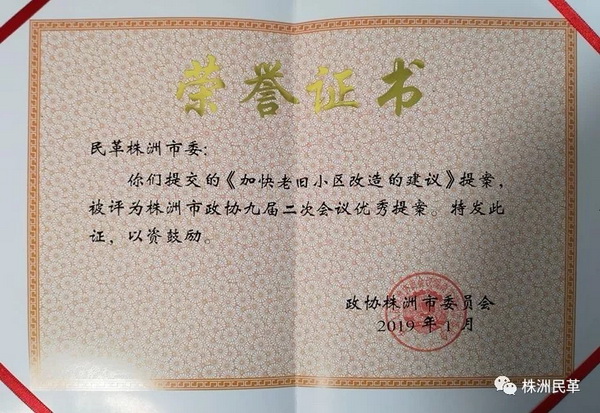 荣誉证书
民革株洲市委：
你们提交的《加快老旧小区改造的建议》提案，
被评为株洲市政协九届二次会议优秀提案。特发此
证，以资鼓励。
政协株洲市委员会
2019年1月
株洲民革